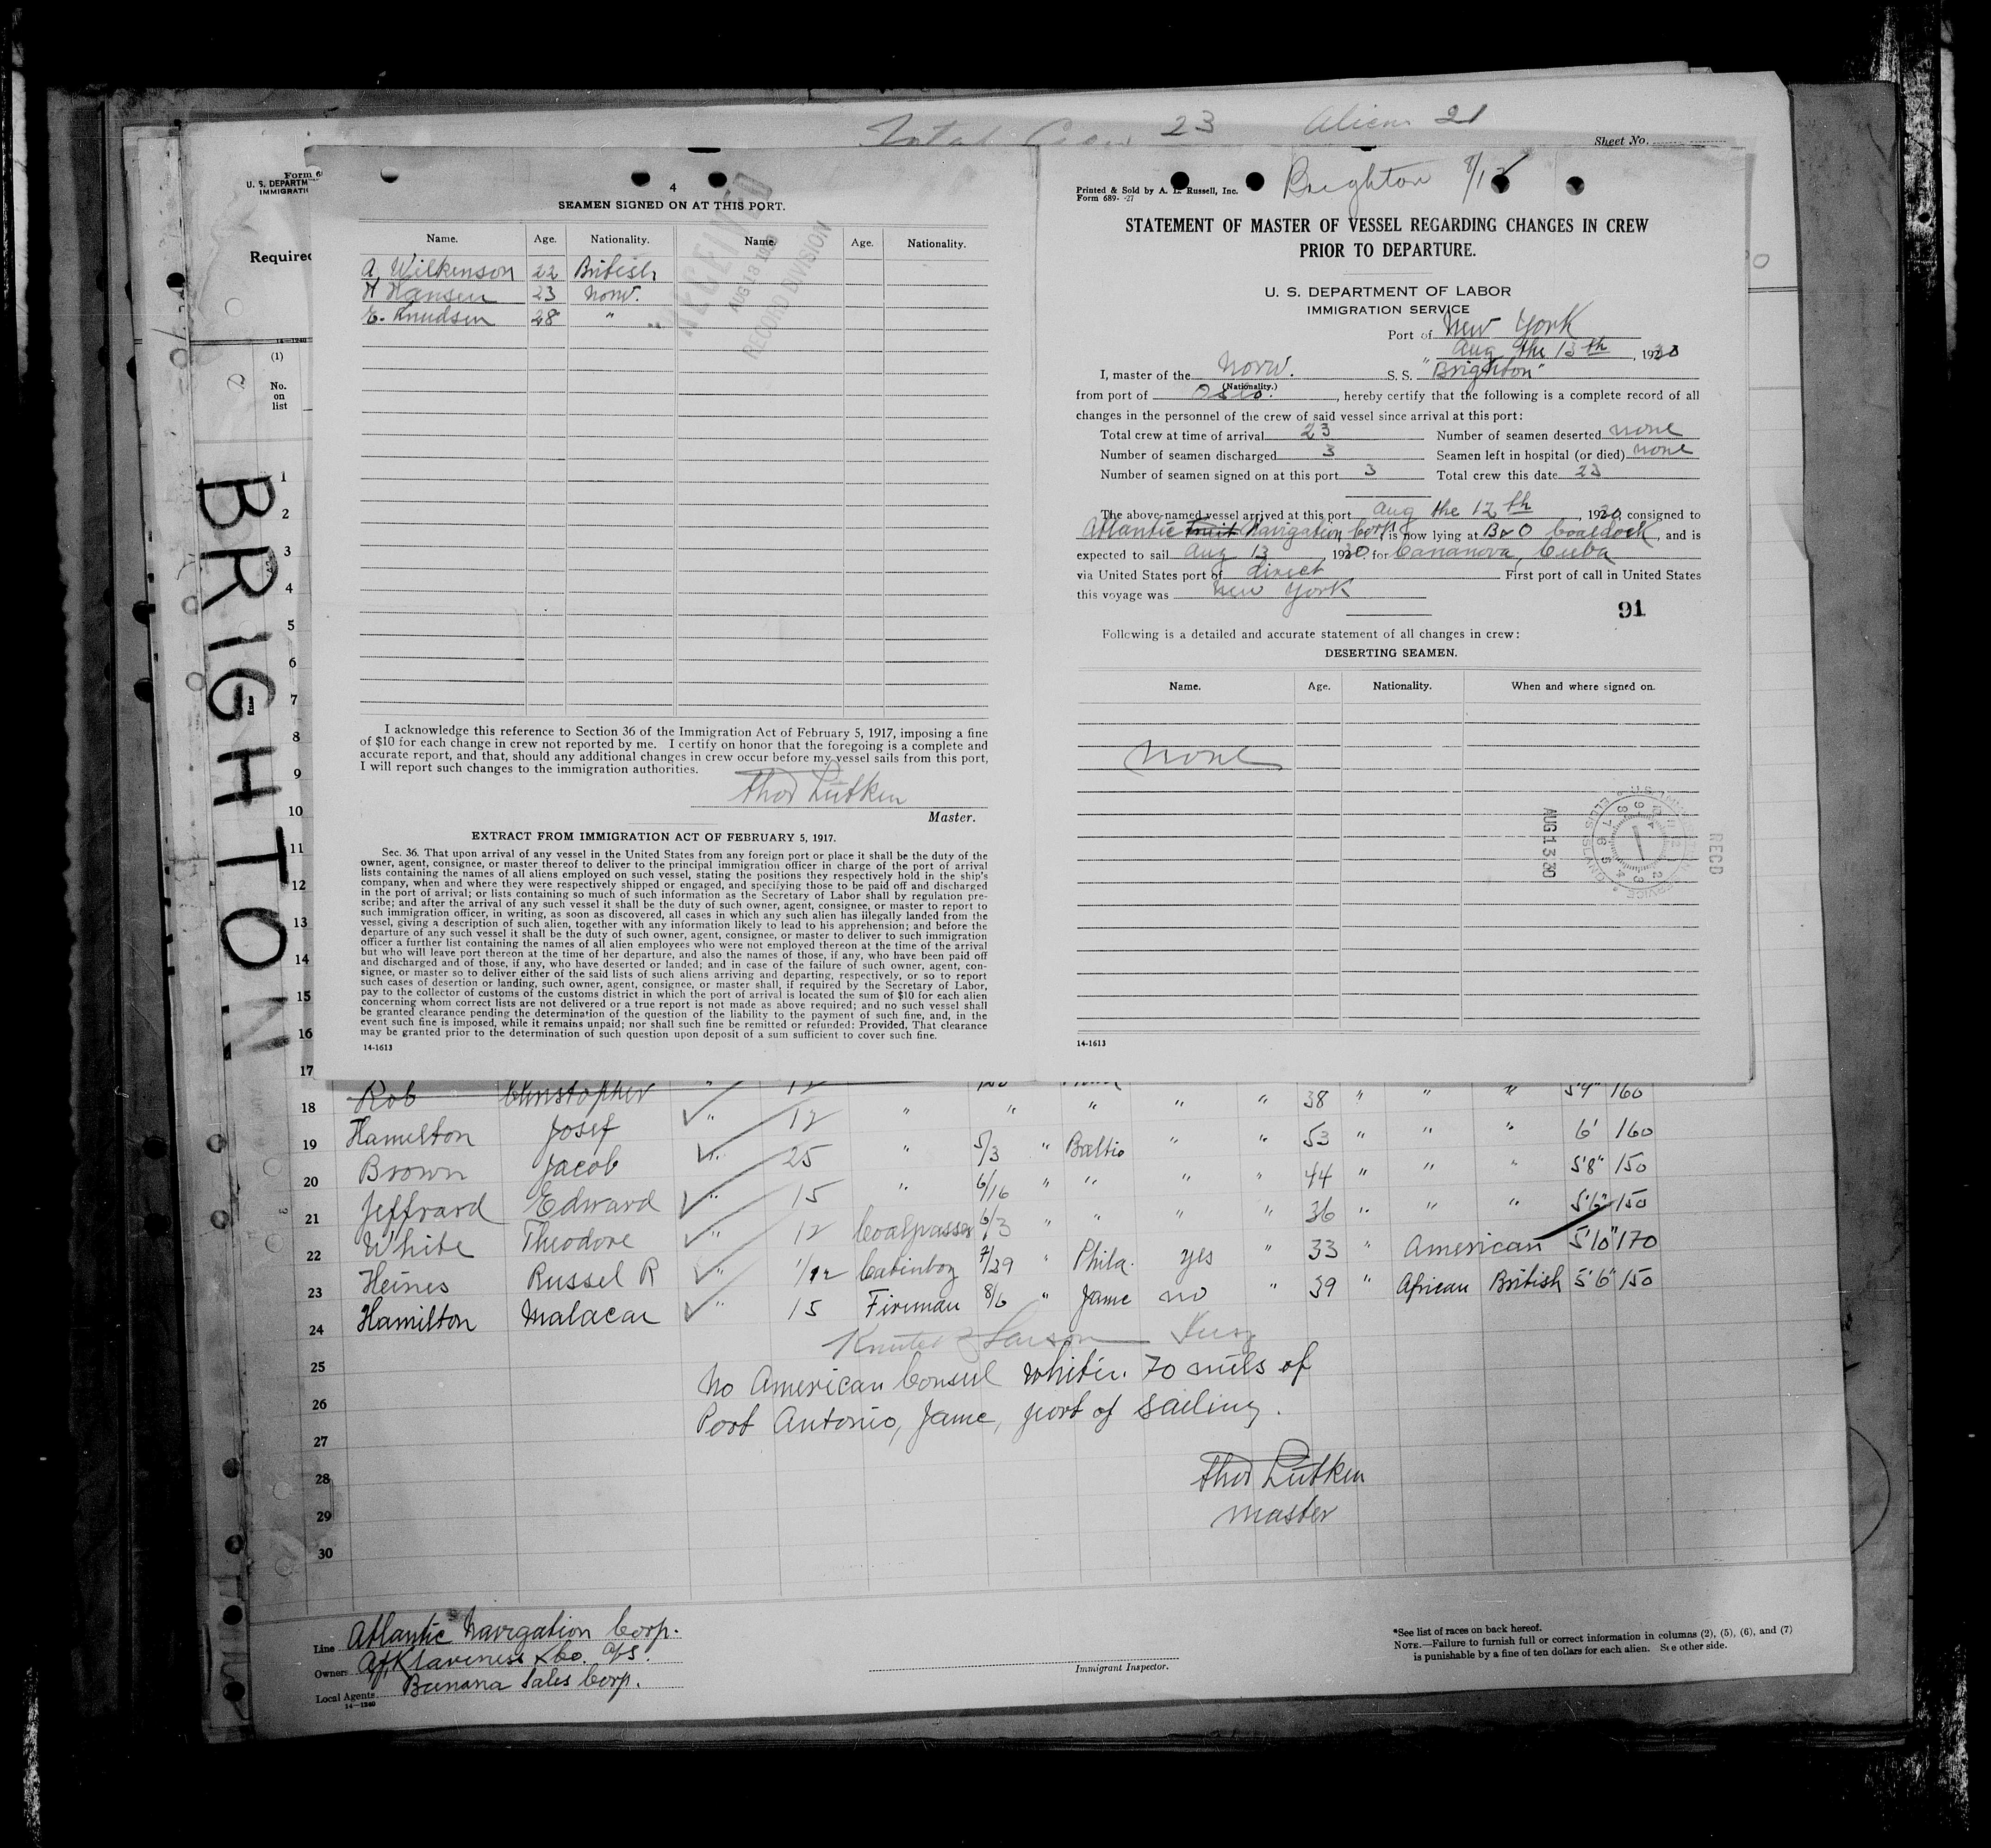 Total Crew 23 Aliens 21
Sheet No.
Form 6
U. S. DEPARTM
IMMIGRATI
Required
14-1240
(1)
No.
on
list
BRIGHTON
1
2
3
4
5
6
7
8
9
10
11
12
13
14
15
16
17
4
SEAMEN SIGNED ON AT THIS PORT.
RECEIVED
AUG 18 1930
RECORD DIVISION
Name. Age. Nationality. Name. Age. Nationality.
A. Wilkenson 22 British
H Hansen 23 Norw.
E. Knudsen 28 "
I acknowledge this reference to Section 36 of the Immigration Act of February 5, 1917, imposing a fine
of $10 for each change in crew not reported by me. I certify on honor that the foregoing is a complete and
accurate report, and that, should any additional changes in crew occur before my vessel sails from this port,
I will report such changes to the immigration authorities.
Thor Lütken
Master.
EXTRACT FROM IMMIGRATION ACT OF FEBRUARY 5, 1917.
Sec. 36. That upon arrival of any vessel in the United States from any foreign port or place it shall be the duty of the
owner, agent, consignee, or master thereof to deliver to the principal immigration officer in charge of the port of arrival
lists containing the names of all aliens employed on such vessel, stating the positions they respectively hold in the ship's
company, when and where they were respectively shipped or engaged, and specifying those to be paid off and discharged
in the port of arrival; or lists containing so much of such information as the Secretary of Labor shall by regulation pre-
scribe; and after the arrival of any such vessel it shall be the duty of such owner, agent, consignee, or master to report to
such immigration officer, in writing, as soon as discovered, all cases in which any such alien has illegally landed from the
vessel, giving a description of such alien, together with any information likely to lead to his apprehension; and before the
departure of any such vessel it shall be the duty of such owner, agent, consignee, or master to deliver to such immigration
officer a further list containing the names of all alien employees who were not employed thereon at the time of the arrival
but who will leave port thereon at the time of her departure, and also the names of those, if any, who have been paid off
and discharged and of those, if any, who have deserted or landed; and in case of the failure of such owner, agent, con-
signee, or master so to deliver either of the said lists of such aliens arriving and departing, respectively, or so to report
such cases of desertion or landing, such owner, agent, consignee, or master shall, if required by the Secretary of Labor,
pay to the collector of customs of the customs district in which the port of arrival is located the sum of $10 for each alien
concerning whom correct lists are not delivered or a true report is not made as above required; and no such vessel shall
be granted clearance pending the determination of the question of the liability to the payment of such fine, and, in the
event such fine is imposed, while it remains unpaid; nor shall such fine be remitted or refunded: Provided, That clearance
may be granted prior to the determination of such question upon deposit of a sum sufficient to cover such fine.
14-1613
Printed & Sold by A. L. Russell, Inc.
Form 689- -27
Brighton 8/12
STATEMENT OF MASTER OF VESSEL REGARDING CHANGES IN CREW
PRIOR TO DEPARTURE.
U. S. DEPARTMENT OF LABOR
IMMIGRATION SERVICE
Port of New York
Aug the 13th, 1930
I, master of the Norw. S. S. "Brighton"
(Nationality.)
from port of Oslo., hereby certify that the following is a complete record of all
changes in the personnel of the crew of said vessel since arrival at this port:
Total crew at time of arrival 23 Number of seamen deserted none
Number of seamen discharged 3 Seamen left in hospital (or died) none
Number of seamen signed on at this port 3 Total crew this date 23
The above-named vessel arrived at this port Aug the 12th, 1930, consigned to
Atlantic Fruit Navigation Corp. is now lying at B&O Coaldock, and is
expected to sail Aug 13, 1930 for Cananova, Cuba
via United States port of direct First port of call in United States
this voyage was New York
91
Following is a detailed and accurate statement of all changes in crew:
DESERTING SEAMEN.
Name. Age. Nationality. When and where signed on.
none
AUG 13 30
RECD
14-1613
Rob Christopher
18 Hamilton Josef " 12 " " " " " 38 " " " 5'9" 160
19 Brown Jacob " 25 " 5/3 " Baltio " " 53 " " " 6' 160
20 Jeffrard Edward " 15 " 6/16 " " " " 44 " " " 5'8" 150
21 White Theodore " 12 Coalpasser 6/3 " " " " 36 " " " 5'6" 150
22 Heines Russel R " 1/12 Cabinboy 7/29 " Phila. yes " 33 " American 5'10" 170
23 Hamilton Malacai " 15 Fireman 8/6 " Jamc no " 39 " African British 5'6" 150
24
25
26
27
28
29
30
No American Consul whitin 70 mils of
Port Antonio, Jamc, port of sailing.
Thor Lütken
Master
Line Atlantic Navigation Corp.
Owners A.F. Klaveness & Co. A/S.
Local Agents Banana Sales Corp.
14-1240
Immigrant Inspector.
*See list of races on back hereof.
NOTE.—Failure to furnish full or correct information in columns (2), (5), (6), and (7)
is punishable by a fine of ten dollars for each alien. See other side.